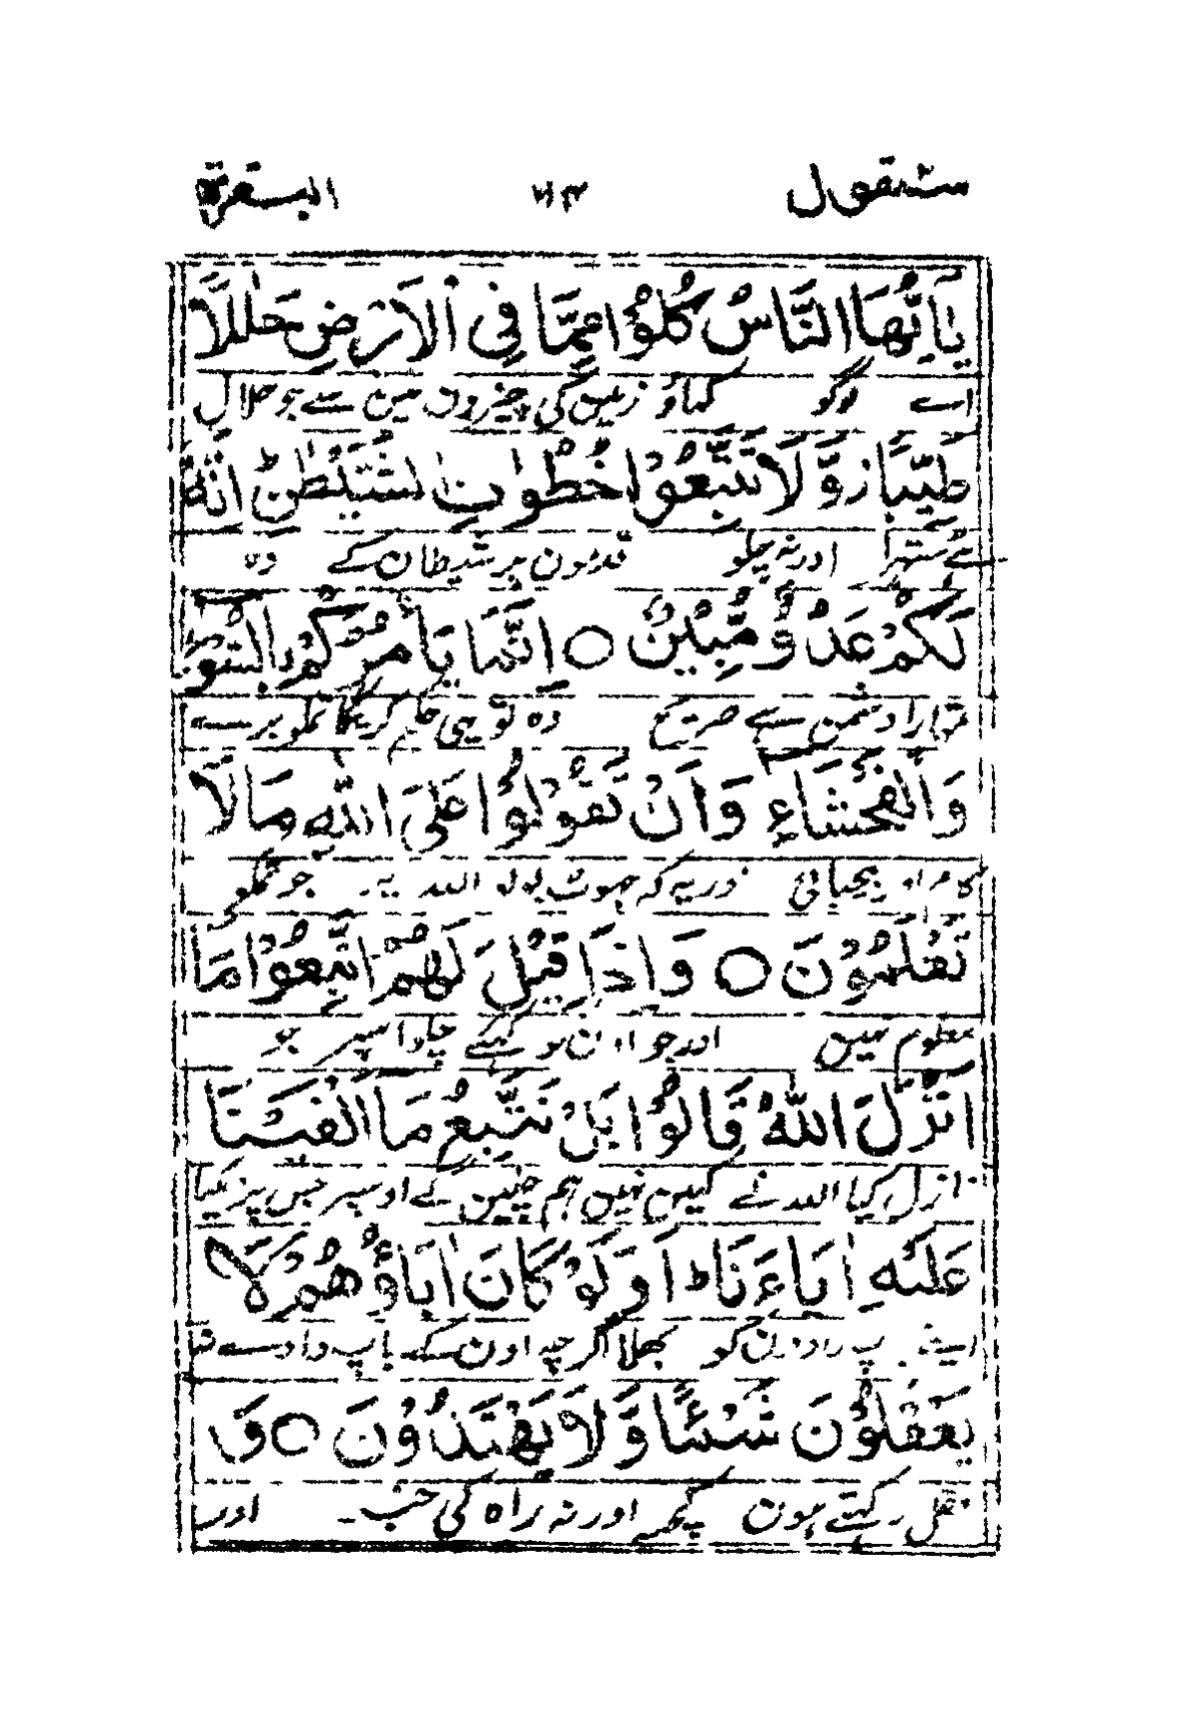 سیقول ۷۴ البقرة
يٰۤاَيُّهَا النَّاسُ كُلُوْا مِمَّا فِی الْاَرْضِ حَلٰلًا
اے لوگو کھاؤ زمین کی چیزوں مین سے جو حلال
طَيِّبًا ز وَّ لَا تَتَّبِعُوْا خُطُوٰتِ الشَّيْطٰنِ ط اِنَّهٗ
ہے ستھرا اور نہ چلو قدمون پر شیطان کے وہ
لَكُمْ عَدُوٌّ مُّبِيْنٌ ○ اِنَّمَا يَاْمُرُكُمْ بِالسُّوْٓءِ
تمہارا دشمن ہے صریح وہ تو یہی حکم کریگا تمکو برے
وَ الْفَحْشَآءِ وَ اَنْ تَقُوْلُوْا عَلَی اللّٰهِ مَا لَا
کام اور بیحیائی اور یہ کہ جھوٹ بولو اللہ پر جو تمکو
تَعْلَمُوْنَ ○ وَ اِذَا قِيْلَ لَهُمُ اتَّبِعُوْا مَاۤ
معلوم نہیں اور جو اون کو کہئے چلو اسپر جو
اَنْزَلَ اللّٰهُ قَالُوْا بَلْ نَتَّبِعُ مَاۤ اَلْفَيْنَا
نازل کیا اللہ نے کہین نہیں ہم چلین گے اوسپر جس پر دیکھا
عَلَيْهِ اٰبَآءَنَا ط اَوَ لَوْ كَانَ اٰبَآؤُهُمْ لَا
اپنے باپ دادون کو بھلا اگرچہ اون کے باپ دادے نہ
يَعْقِلُوْنَ شَيْئًا وَّ لَا يَهْتَدُوْنَ ○ وَ
عقل رکھتے ہون کچھ اور نہ راہ کی اور